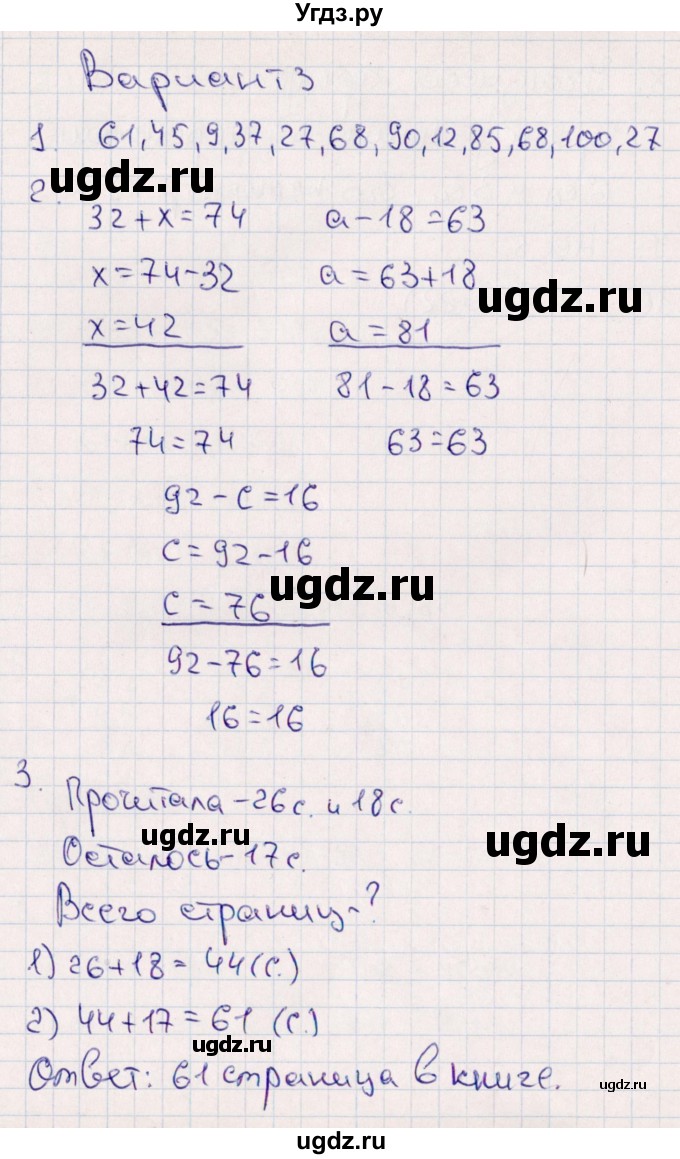 Угдз.ру
Вариант 3
1. 61, 45, 9, 37, 27, 68, 90, 12, 85, 68, 100, 27
ugdz.ru
2.
32+x=74 a-18=63
x=74-32 a=63+18
ugdz.ru
x=42 a=81
32+42=74 81-18=63
74=74 63=63
92-c=16
c=92-16
ugdz.ru
c=76
92-76=16
16=16
3.
Прочитала-26с. и 18с.
ugdz.ru ugdz.ru
Осталось-17с.
Всего страниц-?
1) 26+18=44(с.)
2) 44+17=61 (с.)
ugdz.ru
Ответ: 61 страница в книге.
ugdz.ru
ugdz.ru